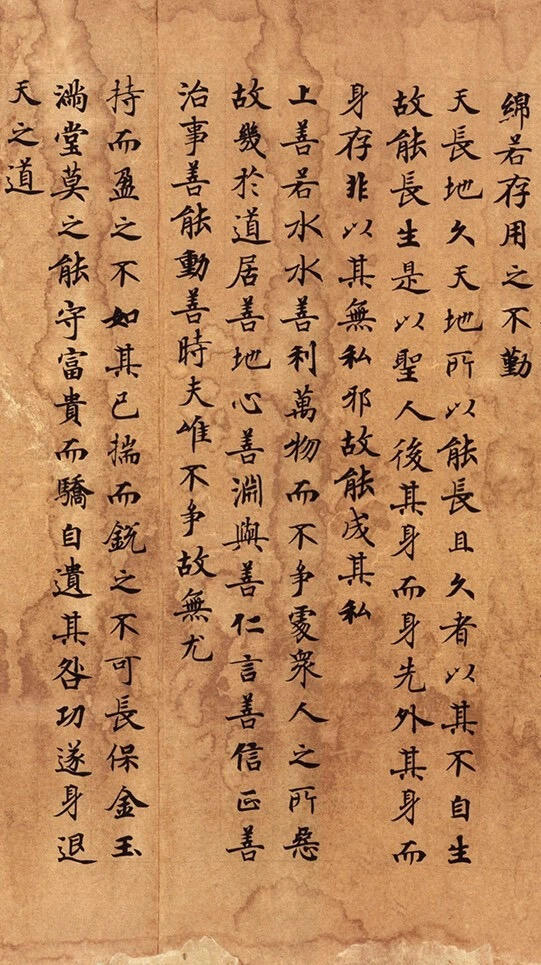 綿若存用之不勤
天長地久天地所以能長且久者以其不自生
故能長生是以聖人後其身而身先外其身而
身存非以其無私邪故能成其私
上善若水水善利萬物而不争處衆人之所惡
故幾於道居善地心善淵與善仁言善信正善
治事善能動善時夫唯不争故無尤
持而盈之不如其已揣而銳之不可長保金玉
滿堂莫之能守富貴而驕自遺其咎功遂身退
天之道